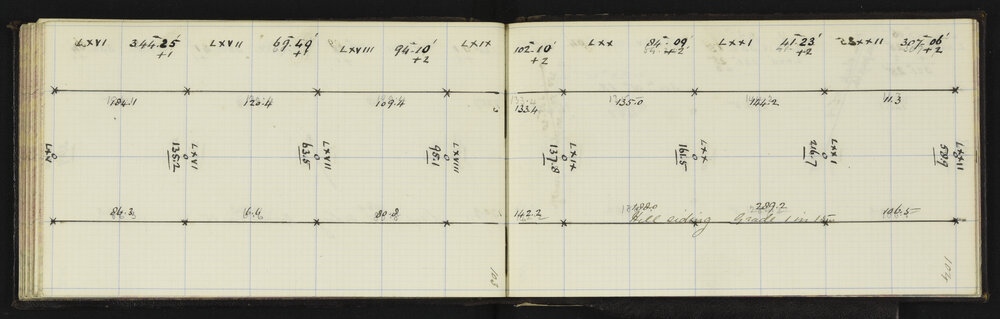 LXVI 344-25' LXVII 69-49' LXVIII 94-10' LXIX 102-10' LXX 84-09' LXXI 41-23' LXXII 387-06'
+1 +1 +2 +2 +2 +2 +2
184.1 120.4 109.4 133.4 135.0 164.2 11.3
LXV
LXVI 0 135.2
LXVII 0 63.5
LXVIII 0 98.1
LXIX 0 137.8
LXX 0 161.5
LXXI 0 216.7
LXXII 0 58.9
86.3 6.6 80.8 142.2 188.0 289.2 106.5
Hill siding Grade 1 in
103
104